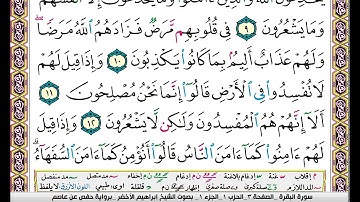 يَخْدَعُونَ إِلَّا أَنفُسَهُمْ
وَمَا يَشْعُرُونَ ٩ فِي قُلُوبِهِم مَّرَضٌ فَزَادَهُمُ ٱللَّهُ مَرَضًا
وَلَهُمْ عَذَابٌ أَلِيمٌۢ بِمَا كَانُوا۟ يَكْذِبُونَ ١٠ وَإِذَا قِيلَ لَهُمْ
لَا تُفْسِدُوا۟ فِى ٱلْأَرْضِ قَالُوٓا۟ إِنَّمَا نَحْنُ مُصْلِحُونَ ١١
أَلَآ إِنَّهُمْ هُمُ ٱلْمُفْسِدُونَ وَلَٰكِن لَّا يَشْعُرُونَ ١٢ وَإِذَا قِيلَ
لَهُمْ ءَامِنُوا۟ كَمَآ ءَامَنَ ٱلنَّاسُ قَالُوٓا۟ أَنُؤْمِنُ كَمَآ ءَامَنَ ٱلسُّفَهَآءُ
سورة البقرة . الصفحة ٣ . الحزب ١ . الجزء ١ . بصوت الشيخ ابراهيم الأخضر . برواية حفص عن عاصم